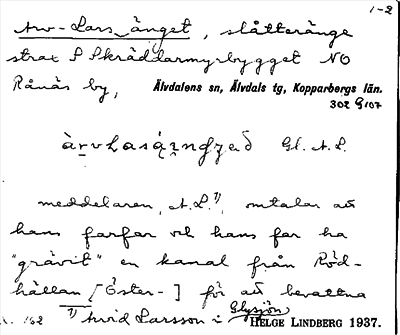 1-2
Arv-Lars änget, slåtteränge
strax S Skräddarmyrbygget NO
Rånäs by,
Älvdalens sn, Älvdals tg, Kopparbergs län.
302 G 107
Gl. A. L.
meddelaren, A.L.¹⁾, omtalar att
hans farfar och hans far ha
"grävit" en kanal från Röd-
hållan [Öster-] för att bevattna
162
¹⁾ Arvid Larsson i Glysjön
HELGE LINDBERG 1937.